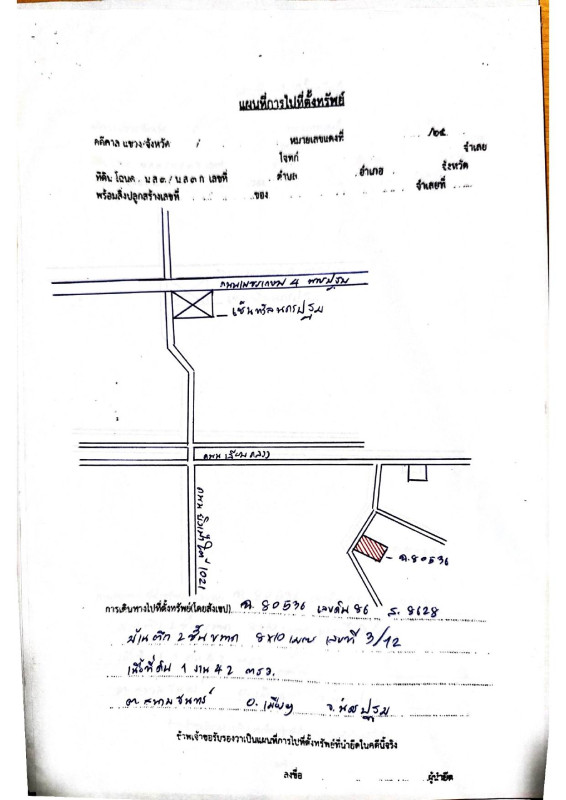 แผนที่การไปที่ตั้งทรัพย์
คดีศาล แขวง/จังหวัด หมายเลขแดงที่ /๒๕ จำเลย
โจทก์
ที่ดิน โฉนด. น.ส ๓ / น.ส ๓ ก เลขที่ ตำบล อำเภอ จังหวัด
พร้อมสิ่งปลูกสร้างเลขที่ ของ จำเลยที่
ถนนเพชรเกษม 4
เซ็นทรัลนครปฐม
ถนน เลียบคลอง
ถนน 1021
ฉ. 80536
การเดินทางไปที่ตั้งทรัพย์(โดยสังเขป) ฉ. 80536 เลขดิน 86 ร. 8628
บ้านตึก 2 ชั้น ขนาด 8x10 เมตร เลขที่ 3/12
เนื้อที่ดิน 1 งาน 42 ตรว.
ต. สนามจันทร์ อ. เมือง จ. นครปฐม
ข้าพเจ้าขอรับรองว่าเป็นแผนที่การไปที่ตั้งทรัพย์ที่นำยึดในคดีนี้จริง
ลงชื่อ ผู้นำยึด